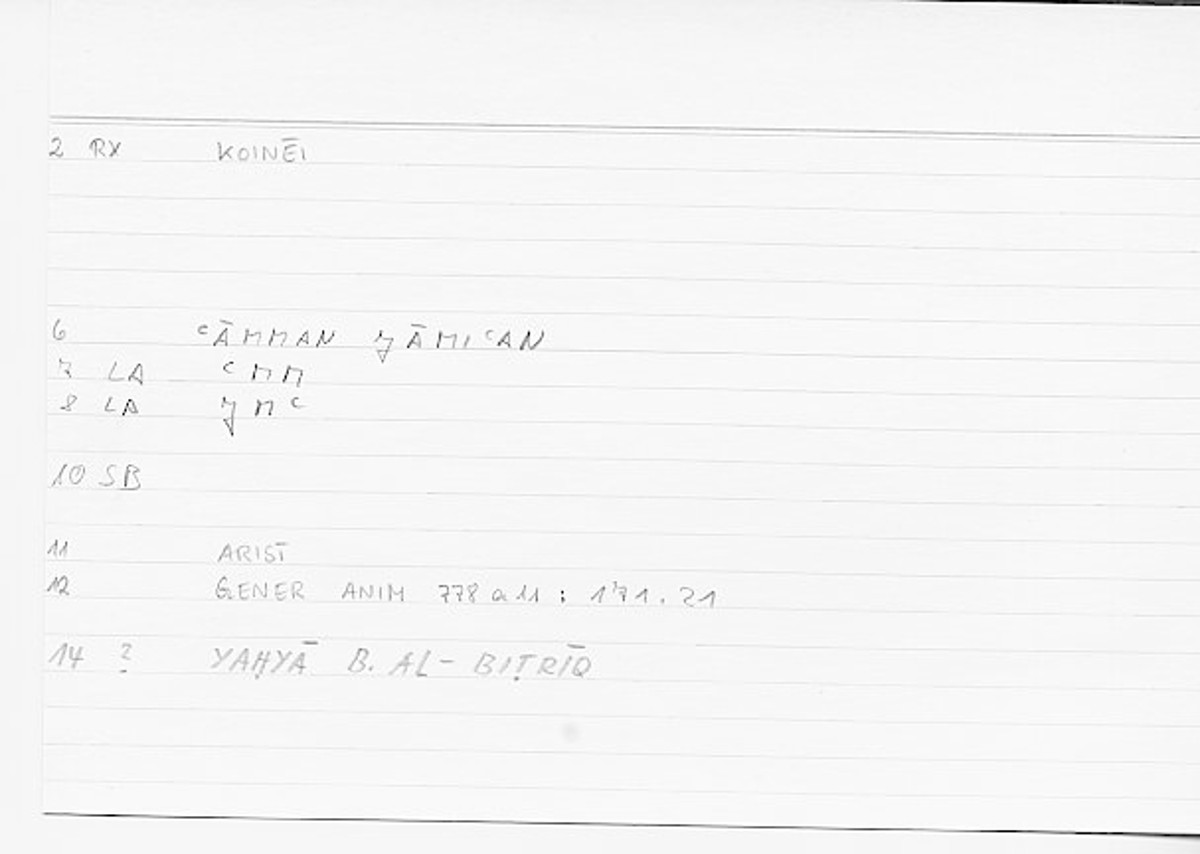 2 RX KOINĒI
6 ᶜĀMMAN ǦĀMIᶜAN
7 LA ᶜMM
8 LA ǦMᶜ
10 SB
11 ARIST
12 GENER ANIM 778 a 11 : 171.21
14 ? YAḤYĀ B. AL-BIṬRĪQ